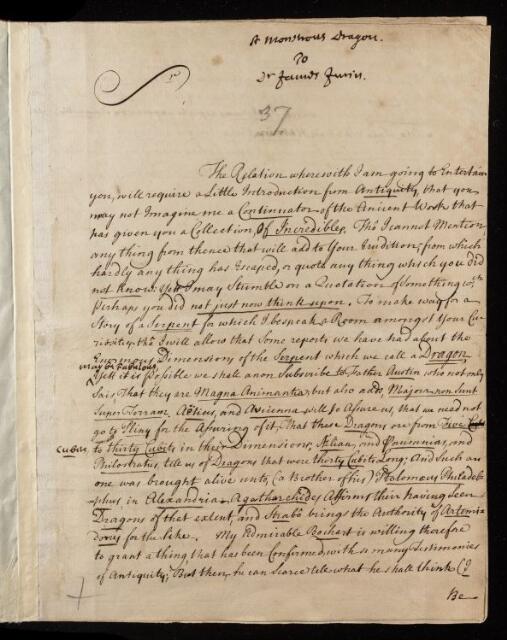 A Monstrous Dragon.
To
Dr James Jurin.
37
The Relation wherewith I am going to Entertain
you, will require a Little Introduction from Antiquity, that you
may not Imagine me a Continuator of the Ancient Work that
has given you a Collection, Of Incredibles. Tho' I cannot Mention
any thing from thence that will add to Your Erudition, from which
hardly any thing has Escaped, or quote any thing which you did
not know: yett I may Stumble on a Quotation of Something wch
perhaps you did not just now think upon. To make way for a
Story of a Serpent for which I bespeak a Room amongst Your Cu-
riosities, tho' I will allow that Some reports we have had about the
Enormous Dimensions of the Serpent which we call a Dragon,
may be Fabulous,
yett it is possible we shall anon Subscribe to Father Austin, who not only
Sais, That they are Magna Animantia, but also adds, Majora non Sunt
Super Terram. Aetius, and Avicenna will so Assure us, that we need not
go to Pliny for the Assuring of it, That these Dragons are from Five
Cubits
to thirty Cubits in their Dimensions; Ælian, and Pausanias, and
Philostratus, tell us of Dragons that were thirty Cubits Long; And Such an
one was brought alive unto, (a Brother of his) Ptolomeus Philadel-
phus in Alexandria. Agatharchides Affirms their having Seen
Dragons of that extent, and Strabo brings the Authority of Artemi-
dorus for the like. My Admirable Bochart is willing therefore
to grant a thing, that has been Confirmed with so many Testimonies
of Antiquity; But then, he can scarce tell what he shall think
Be